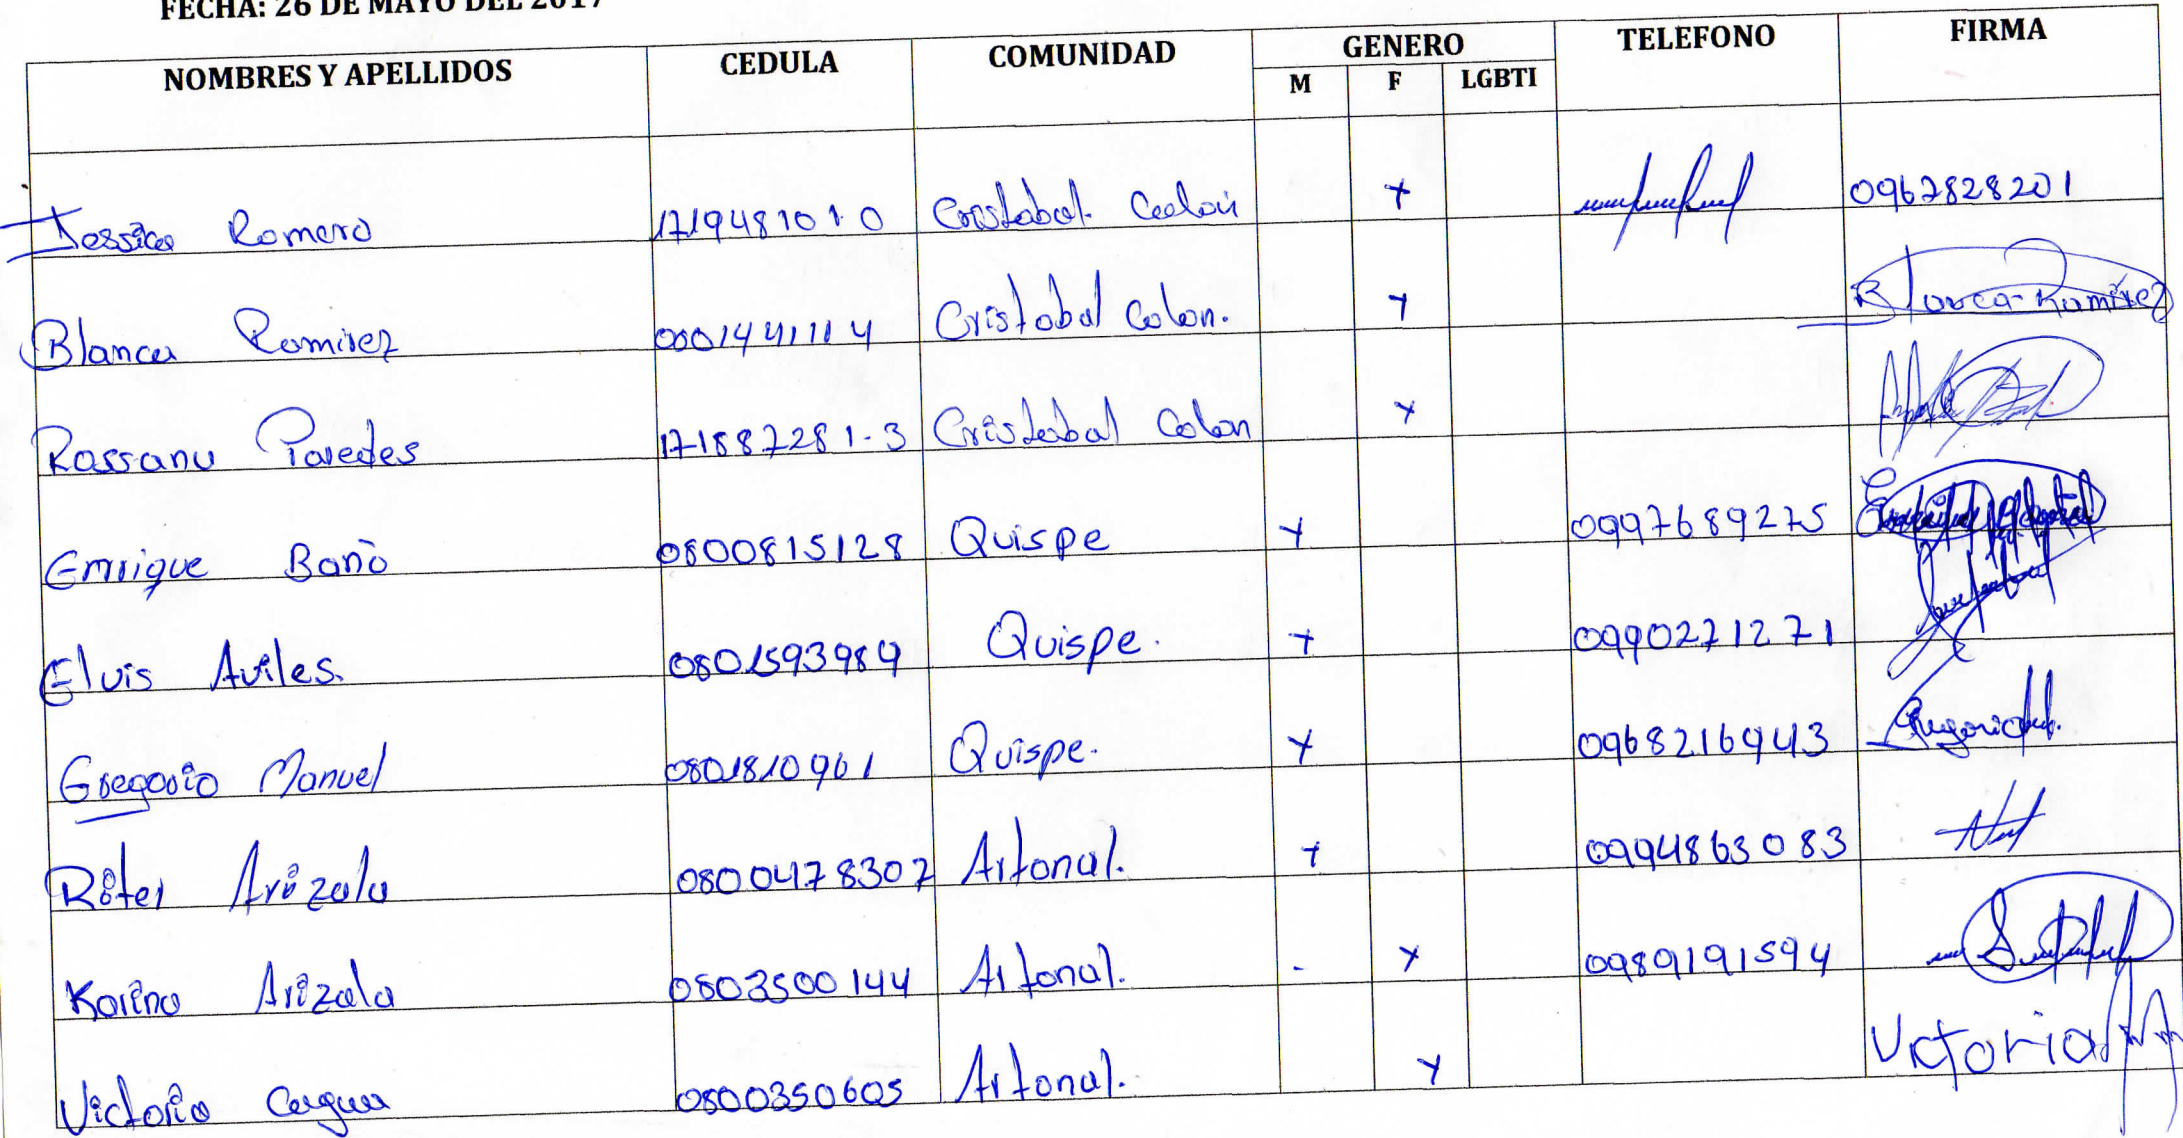 FECHA: 26 DE MAYO DEL 2017
NOMBRES Y APELLIDOS CEDULA COMUNIDAD GENERO TELEFONO FIRMA
M F LGBTI
Jessica Romero 171948101-0 Cristobal Colon + 0967828201
Blanca Ramirez 0801441114 Cristobal Colon. + Blanca Ramirez
Rossana Paredes 171887281-3 Cristobal Colon +
Enrique Baño 0800815128 Quispe + 0997689275
Elvis Aviles. 0801593989 Quispe. + 0990271271
Gregorio Manuel 0801810961 Quispe. + 0968216943
Arizala 0800478302 Artonal. + 0994863083
Karina Arizala 0803500144 Artonal. - + 0989191594
Victoria 0800350605 Artonal. + Victoria